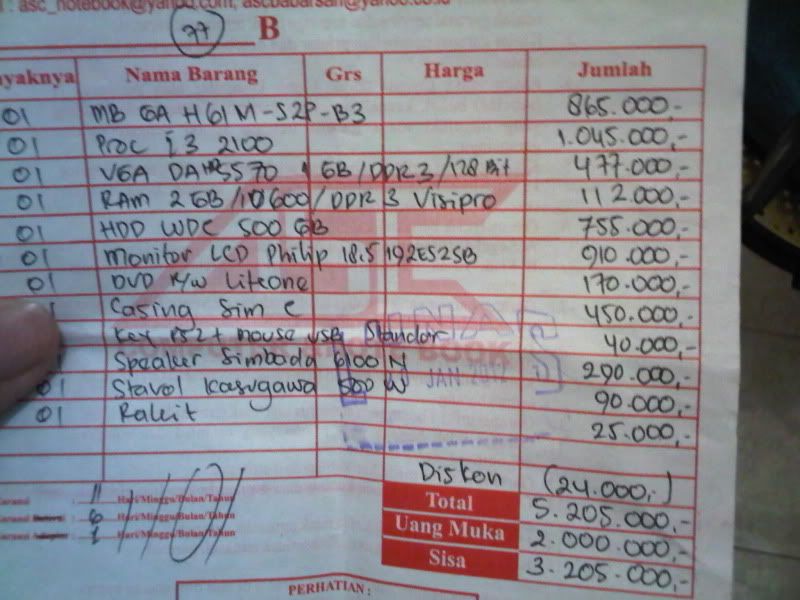 : asc_notebook@yahoo.com, ascbabarsari@yahoo.co.id
77 B
yaknya Nama Barang Grs Harga Jumlah
01 MB GA H61M-S2P-B3 865.000,-
01 Proc i3 2100 1.045.000,-
01 VGA DA HD5570 1 GB/DDR3/128 Bit 477.000,-
01 RAM 2 GB/10600/DDR 3 Visipro 112.000,-
01 HDD WDC 500 GB 755.000,-
01 Monitor LCD Philip 18.5 192E52SB 910.000,-
01 DVD R/W Liteone 170.000,-
Casing Sim C 450.000,-
Key PS2 + mouse USB Standar 40.000,-
Speaker Simboda 6100 N 290.000,-
01 Stavol Kasugawa 500 W 90.000,-
01 Rakit 25.000,-
JAN 2012
Diskon (24.000,-)
Total 5.205.000,-
Uang Muka 2.000.000,-
Sisa 3.205.000,-
Garansi : 1 Hari/Minggu/Bulan/Tahun
Garansi : 6 Hari/Minggu/Bulan/Tahun
Garansi Adaptor : 1 Hari/Minggu/Bulan/Tahun
PERHATIAN :